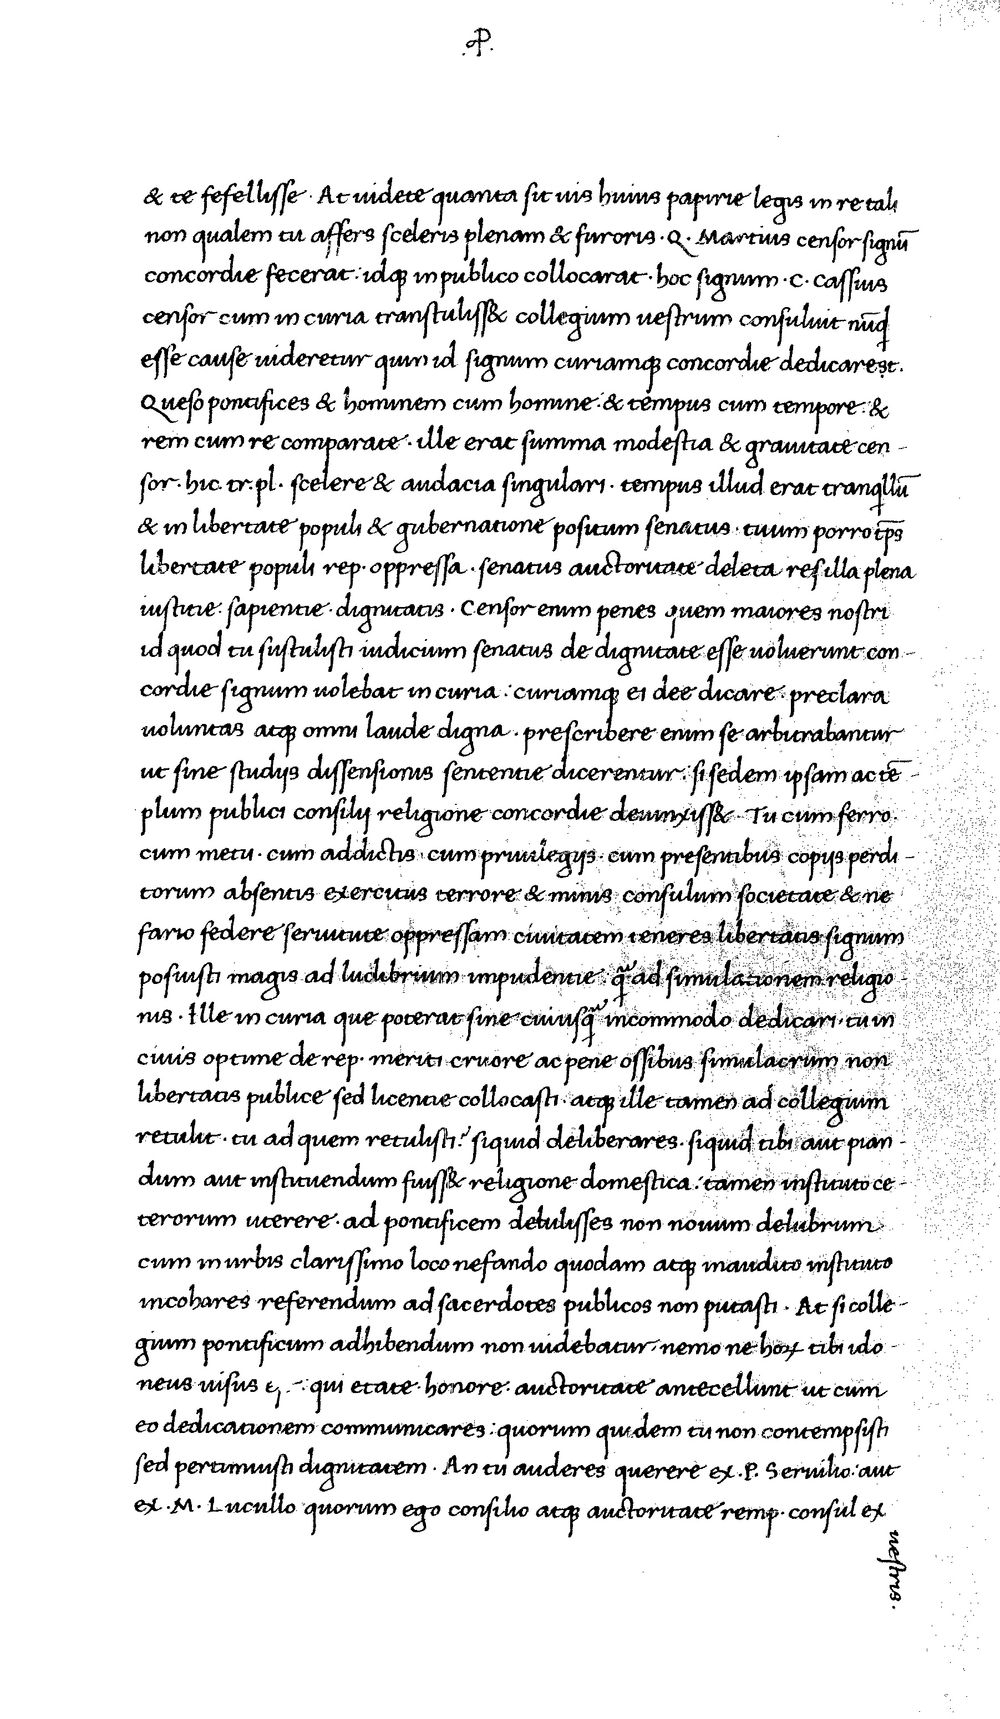 .P.
& te fefellisse · At uidete quanta sit uis huius papirie legis in re tali
non qualem tu affers sceleris plenam & furoris · Q · Martius censor signū
concordie fecerat : idq; in publico collocarat · hoc signum · C · Cassius
censor cum in curia transtuliss& collegium uestrum consuluit nūq̄d
esse cause uideretur quin id signum curiamq; concordie dedicaret.
Queso pontifices & hominem cum homine · & tempus cum tempore · &
rem cum re comparate · ille erat summa modestia & grauitate cen -
sor · hic tr. pl. scelere & audacia singulari · tempus illud erat tranqllū
& in libertate populi & gubernatione positum senatus · tuum porro tp̄s
libertate populi rep · oppressa · senatus auctoritate deleta res illa plena
iustitie · sapientie · dignitatis · Censor enim penes quem maiores nostri
id quod tu sustulisti iudicium senatus de dignitate esse uoluerunt con -
cordie signum uolebat in curia : curiamq; ei dee dicare · preclara
uoluntas atq; omni laude digna · prescribere enim se arbitrabantur
ut sine studijs dissensionis sententie dicerentur · si sedem ipsam ac tē -
plum publici consilij religione concordie deuinxiss& · Tu cum ferro ·
cum metu · cum addictis · cum priuilegijs · cum presentibus copijs perdi -
torum absentis exercitus terrore & minis consulum societate & ne
fario federe seruitute oppressam ciuitatem teneres libertatis signum
posuisti magis ad ludibrium impudentie · q̄ ad simulationem religio -
nis · Ille in curia que poterat sine cuiusq̄ incommodo dedicari · tu in
ciuis optime de rep · meriti cruore ac pene ossibus simulacrum non
libertatis publice sed licentie collocasti · atq; ille tamen ad collegium
retulit · tu ad quem retulisti? siquid deliberares · siquid tibi aut pian -
dum aut instituendum fuiss& religione domestica : tamen instituto ce -
terorum uterere · ad pontificem detulisses non nouum delubrum
cum in urbis clarissimo loco nefando quodam atq; inaudito instituto
incohares referendum ad sacerdotes publicos non putasti · At si colle -
gium pontificum adhibendum non uidebatur · nemo ne hoꝝ tibi ido -
neus uisus qui etate · honore · auctoritate antecellunt ut cum
eo dedicationem communicares : quorum quidem tu non contempsisti
sed pertimuisti dignitatem · An tu auderes querere ex · P. Seruilio : aut
ex · M · Lucullo quorum ego consilio atq; auctoritate remp · consul ex
uestris ·